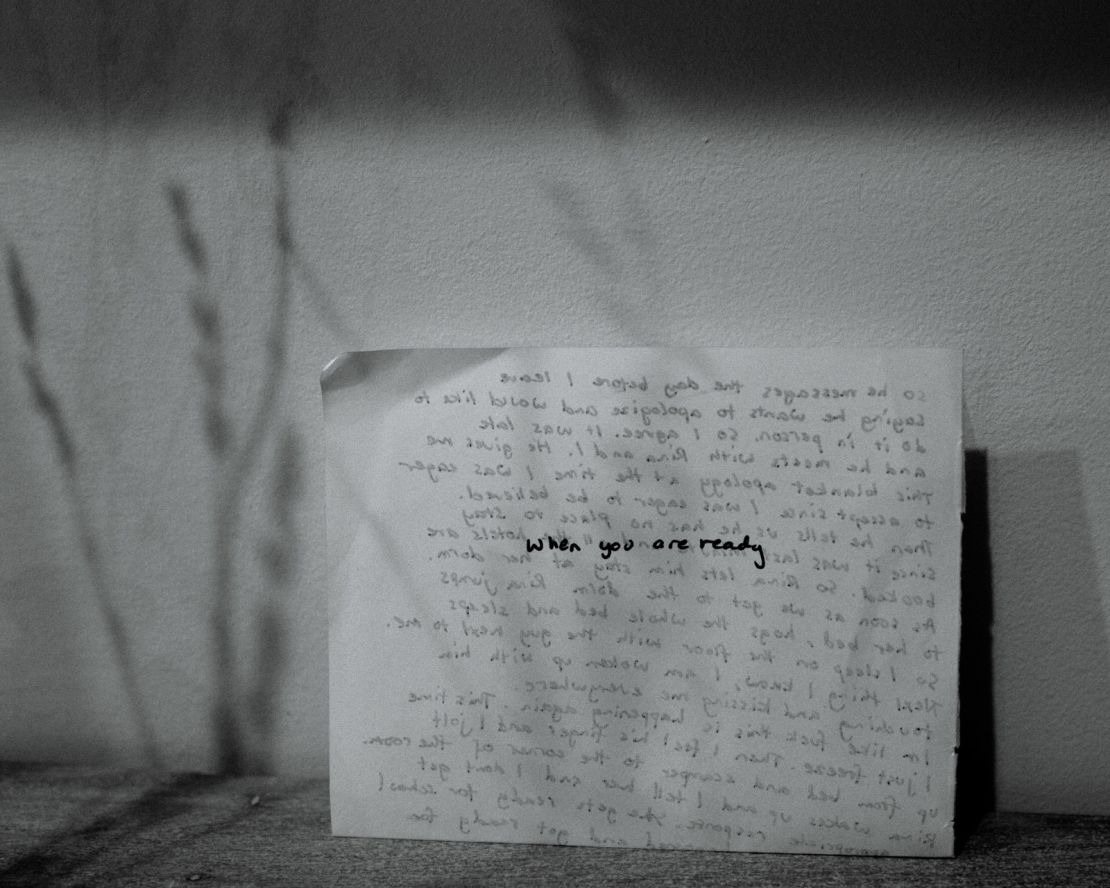 so he messages the day before I leave
saying he wants to apologize and would like to
do it in person. So I agree. It was late
and he meets with Rina and I. He gives me
This blanket apology at the time I was eager
to accept since I was eager to be believed.
Then he tells us he has no place to stay
when you are ready
since it was last hotels are
booked. So Rina lets him stay at her dorm.
As soon as we get to the dorm Rina jumps
to her bed, hogs the whole bed and sleeps
So I sleep on the floor with the guy next to me.
Next thing I know, I am woken up with him
touching and kissing me everywhere.
Im like fuck this is happening again. This time
I just freeze. Then I feel his fingers and I jolt
up from bed and scamper to the corner of the room.
Rina wakes up and I tell her and I dont get
appropriate response. She gets ready for school
and got ready for